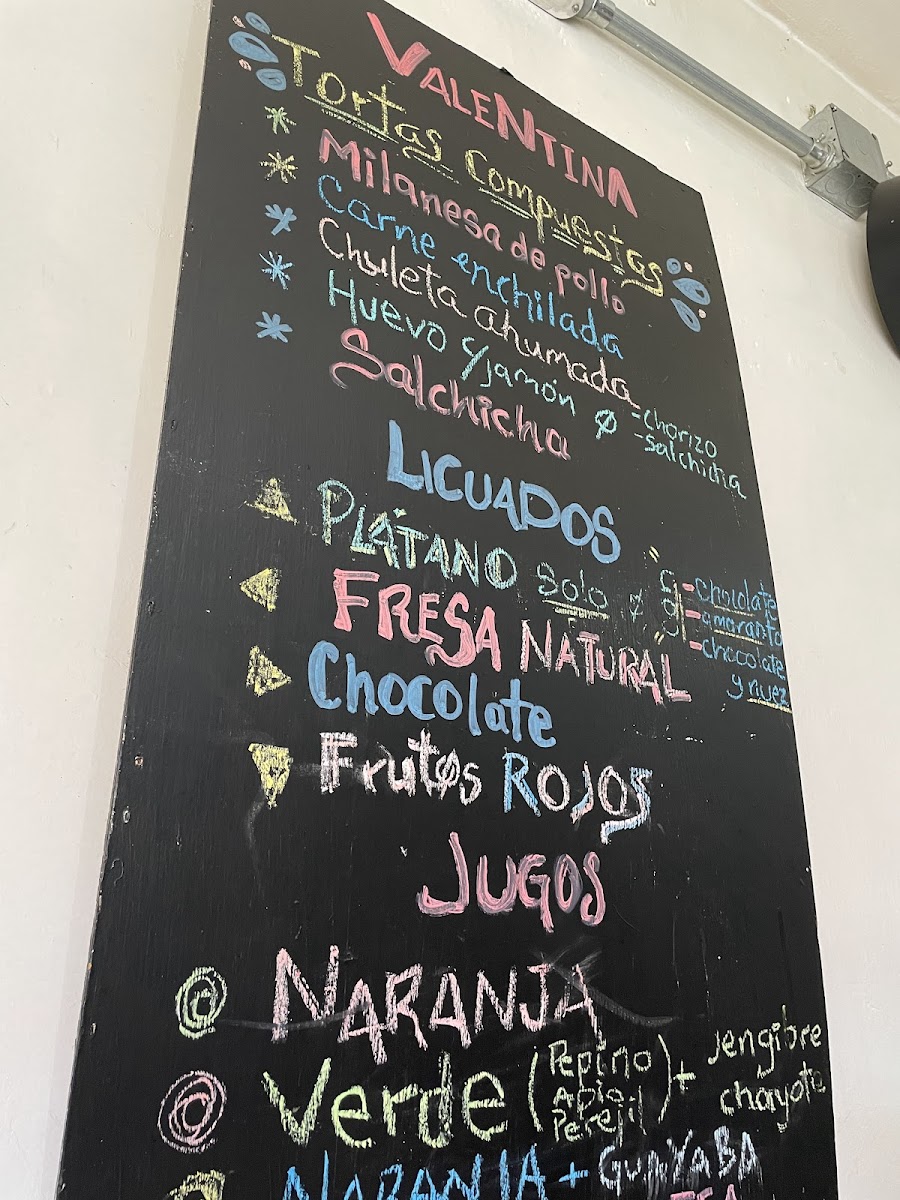 VALENTINA
Tortas Compuestas
Milanesa de pollo
Carne enchilada
Chuleta ahumada
Huevo y jamón o -chorizo
-salchicha
Salchicha
LICUADOS
PLÁTANO solo o
-chocolate
-amaranto
-chocolate
y nuez
FRESA NATURAL
Chocolate
Frutos ROJOS
JUGOS
NARANJA
Verde (Pepino Apio Perejil) + Jengibre chayote
NARANJA + GUAYABA